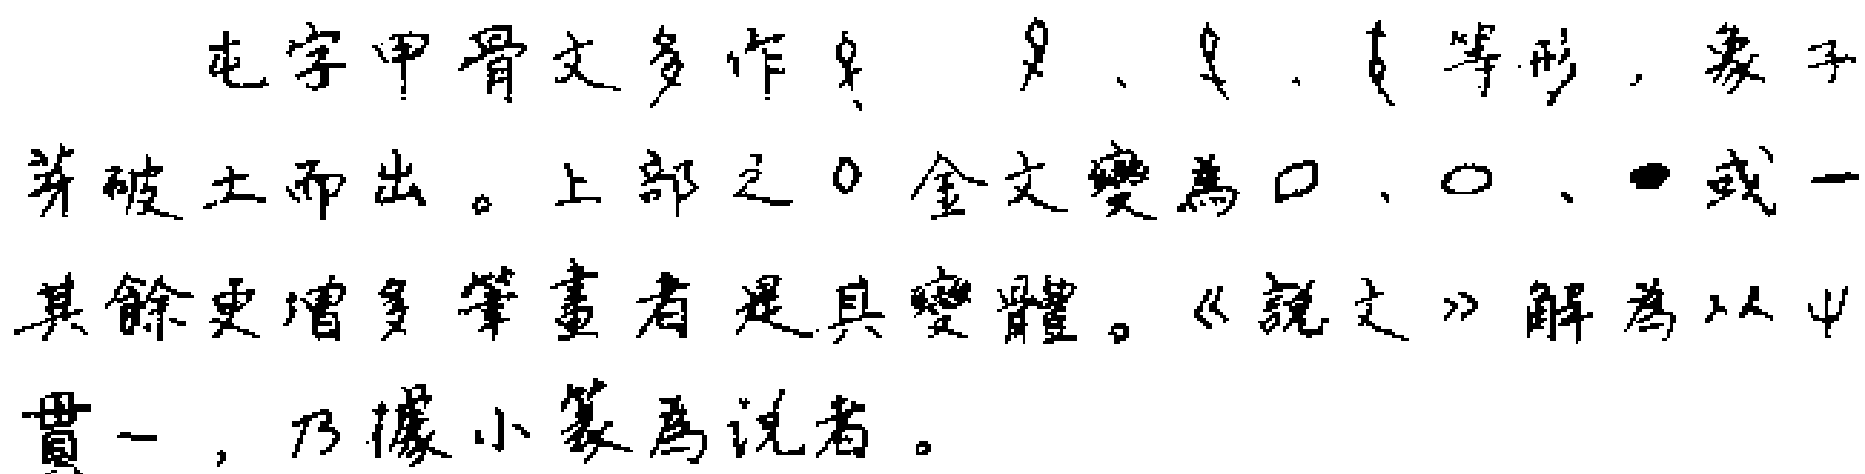 屯字甲骨文多作、、等形，象子
芽破土而出。上部之0金文變為□、○、●或一
其餘更增多筆畫者是其變體。《說文》解為从屮
貫一，乃據小篆為説者。